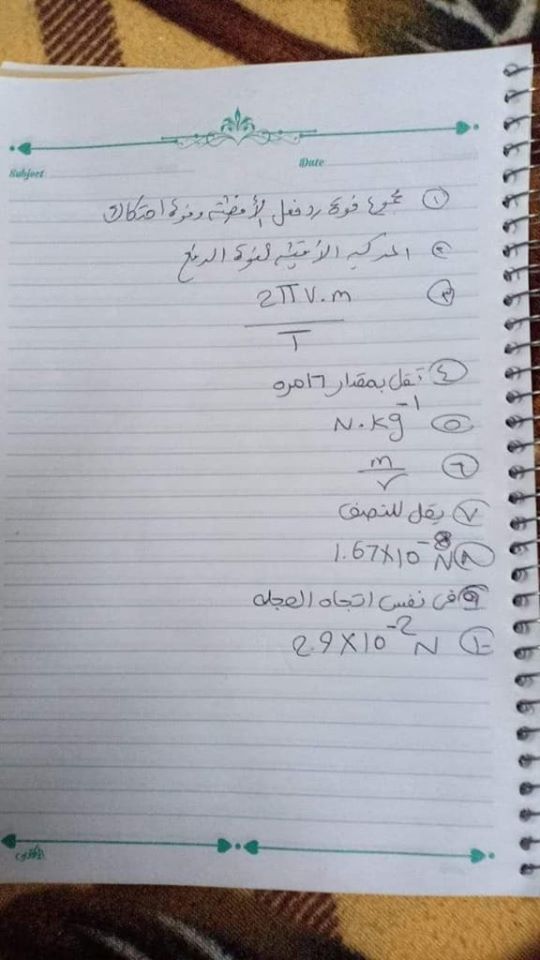 Subject
Date
① مجموع قوة رد فعل الأفقية وقوة احتكاك
② المركبة الأفقية لقوة الرفع
③ 2πv.m
T
④ تقل بمقدار ١٦ مره
⑤ N.kg⁻¹
⑥ m
r
⑦ يقل للنصف
⑧ 1.67×10⁻⁸ N
⑨ في نفس اتجاه العجله
⑩ 2.9×10⁻² N